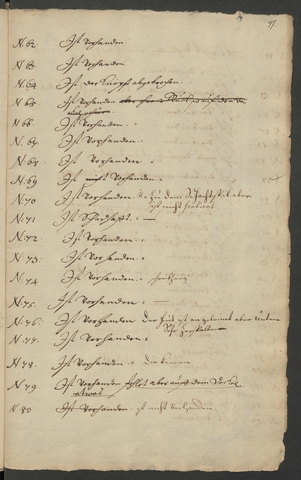 N: 62 Ist Vorhanden.
N: 63. Ist Vorhanden
N: 64 Ist der Knopf abgebrochen.
N: 65. Ist Vorhanden
N: 66. Ist Vorhanden.
N: 67. Ist Vorhanden.
N: 68. Ist Vorhanden.
N: 69 Ist nicht Vorhanden.
N: 70 Ist Vorhanden. zu dem
ist nicht
N: 71 Ist Schadhafft.
N: 72 Ist Vorhanden.
N: 73. Ist Vorhanden.
N: 74 Ist Vorhanden.
N: 75. Ist Vorhanden.
N: 76. Ist Vorhanden der ist aber Unten
N: 77. Ist Vorhanden.
N 78. Ist Vorhanden.
N 79 Ist Vorhanden fehlt aber auf dem
etwas
N 80 Ist Vorhanden ist nicht Vorhanden